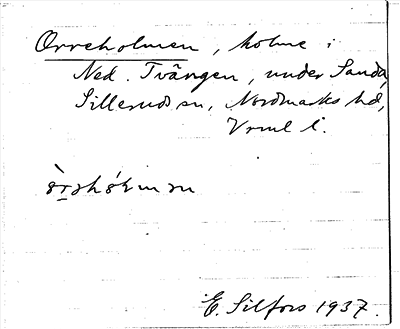 Orreholmen, holme i
Ned. Tvängen, under Sanda,
Sillerud sn, Nordmarks hd,
Vrml l.
E. Silfors 1937.